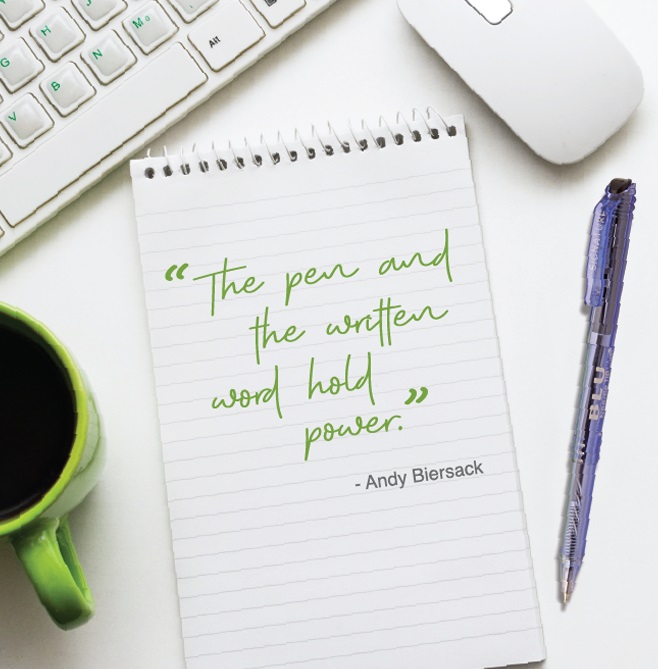 G
H
J
V
B
N
M
Alt
“The pen and
the written
word hold
power.”
- Andy Biersack
BLU